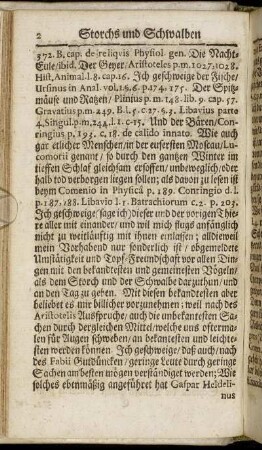 2 Storchs und Schwalben
372. B. cap. de reliqvis Physiol. gen. Die Nacht-
Eule/ibid. Der Geyer/Aristoteles p.m.1027.1028.
Hist. Animal.l.8.cap.16. Ich geschweige der Fische/
Ursinus in Anal. vol.15.6.p.174.175. Der Spitz-
mäuse und Ratzen/Plinius p.m.148. lib.9. cap.57.
Gravatius p.m.249. B.l.5.c.27.5.3. Libavius parte
4.Singul.p.m.234.l.1.c.15. Und der Bären/Con-
ringius p.193. c.18. de calido innato. Wie auch
gar etlicher Menschen/in der eusersten Moscau/Lu-
comorii genant/so durch den gantzen Winter im
tieffen Schlaf gleichsam ersoffen/unbeweglich/oder
halb tod verborgen liegen sollen; als davon zu lesen ist
beym Comenio in Physicâ p. 189. Contingio d.l
p.187.188. Libavio l.1. Batrachiorum c.2. p.203.
Ich geschweige/sage ich/dieser und der vorigen Thie-
re aller mit einander/und wil mich flugs anfänglich
nicht zu weitläuftig mit ihnen einlassen; alldieweil
mein Vorhabend nur sonderlich ist/obgemeldete
Unstätigkeit und Topf-Freundschaft vor allen Din
gen mit den bekandtesten und gemeinesten Vögeln/
als dem Storch und der Schwalbe darzuthun/und
an den Tag zu geben. Mit diesen bekandtesten aber
beliebet es mir billicher vorzunehmen; weil nach des
Aristotelis Ausspruche/auch die unbekantesten Sa-
chen durch dergleichen Mittel/welche uns osterma-
len für Augen schweben/an bekantesten und leichte-
sten werden können. Ich geschweige/daß auch/nach
des Fabii Gutdüncken/geringe Leute durch geringe
Sachen am besten mögen verständiget werden; Wie
solches ebenmässig angeführet hat Caspar Heldeli-
nus